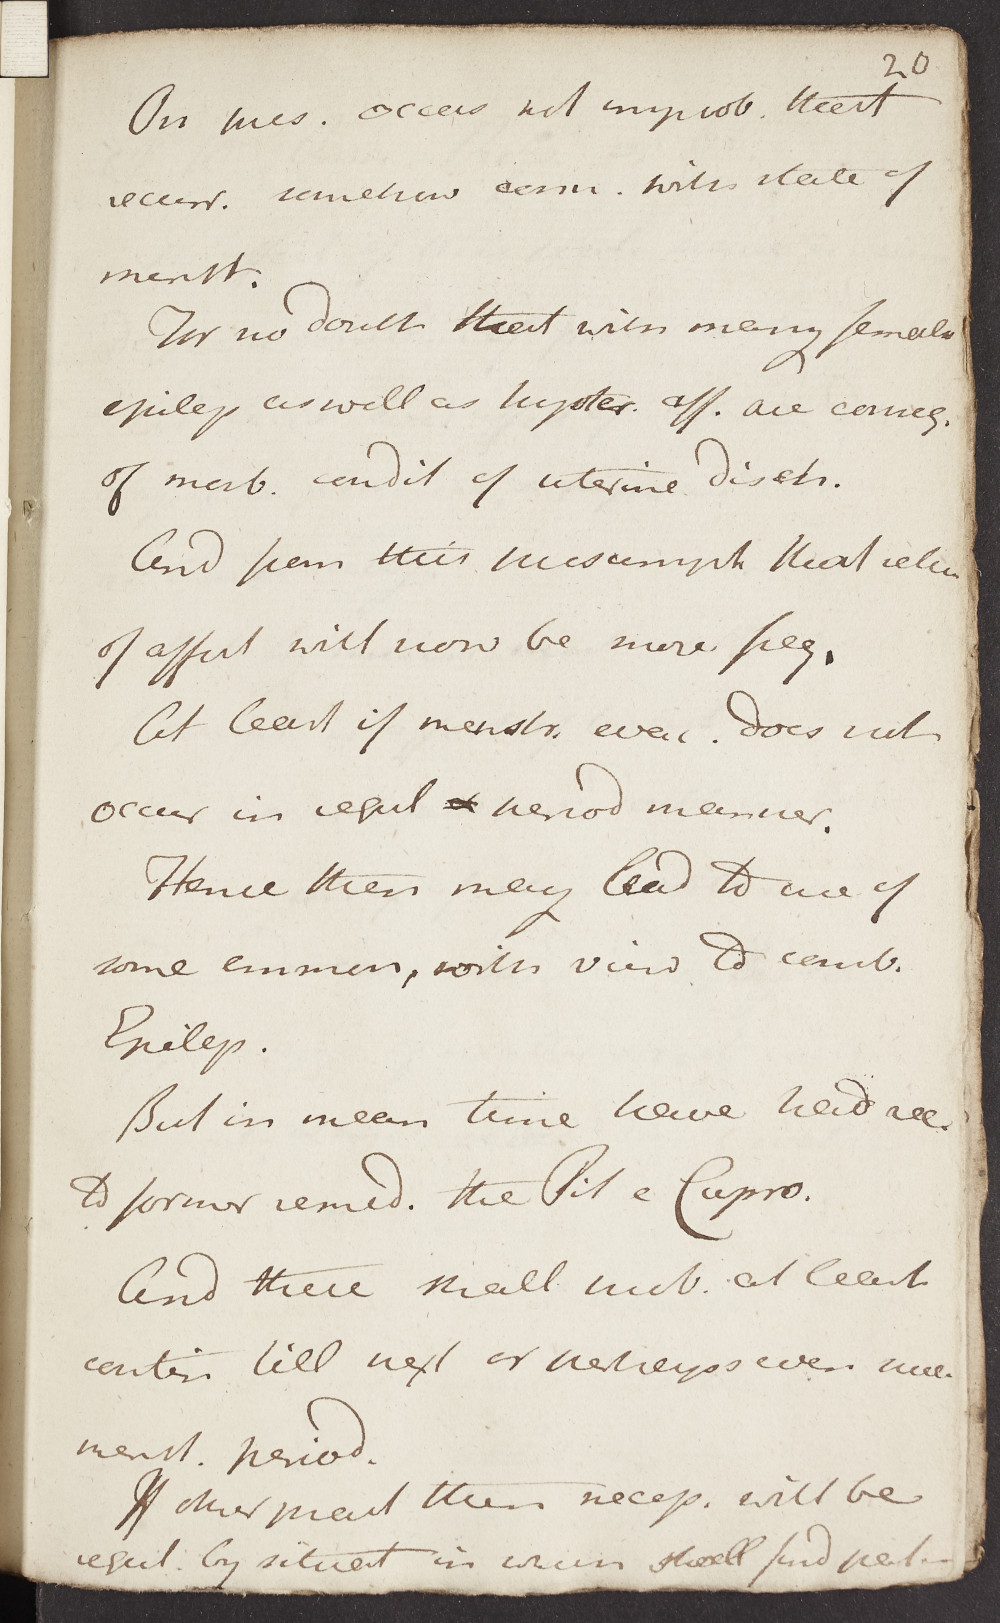 20
On pres. occas not improb. that
recurr. somehow conn. with state of
menst.
For no doubt that with many female
epilep as well as hyster. aff. are conseq.
of morb. condit of uterine disch.
And from this presumpt that return
of affect will now be more freq.
At least if menstr. evac. does not
occur in regul period manner.
Hence then may lead to use of
some emmen, with view to comb.
Epilep.
But in mean time have had rec.
to former remed. the Pil e Cupro.
And these shall prob. at least
contin till next or perhaps even
menst. period.
If other pract then necess. will be
regul. by situat in which shall find patn